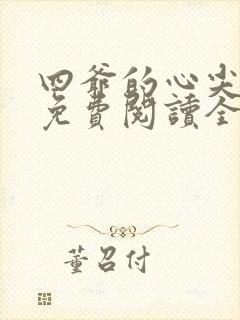 四爺的心尖
免費閱讀全
董召付